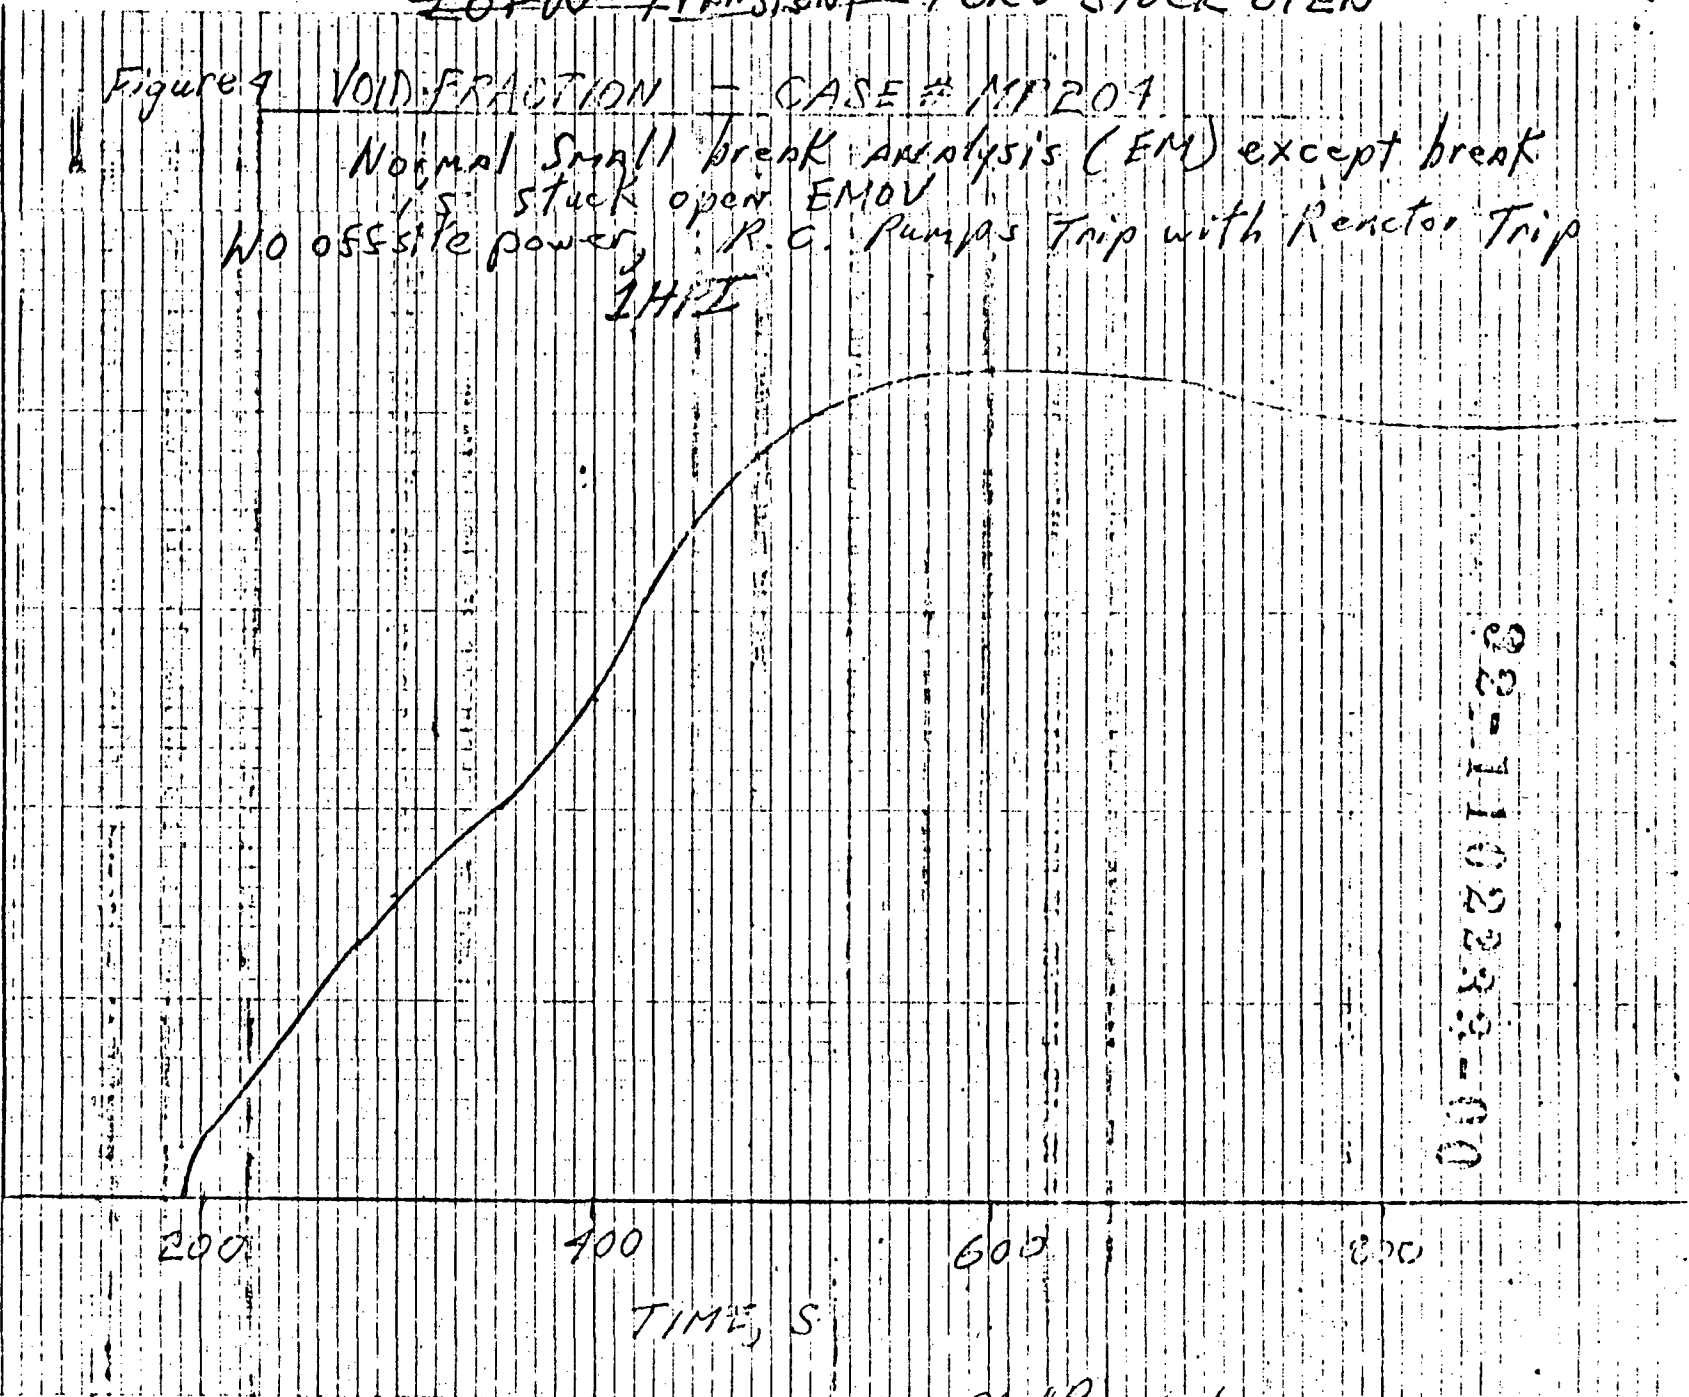 LOFW TRANSIENT PORV STUCK OPEN
Figure 4 VOID FRACTION - CASE # MP204
Normal Small break analysis (EM) except break
is stuck open EMOV
No offsite power, R.C. Pumps Trip with Reactor Trip
1HPI
200 400 600 800
TIME, S